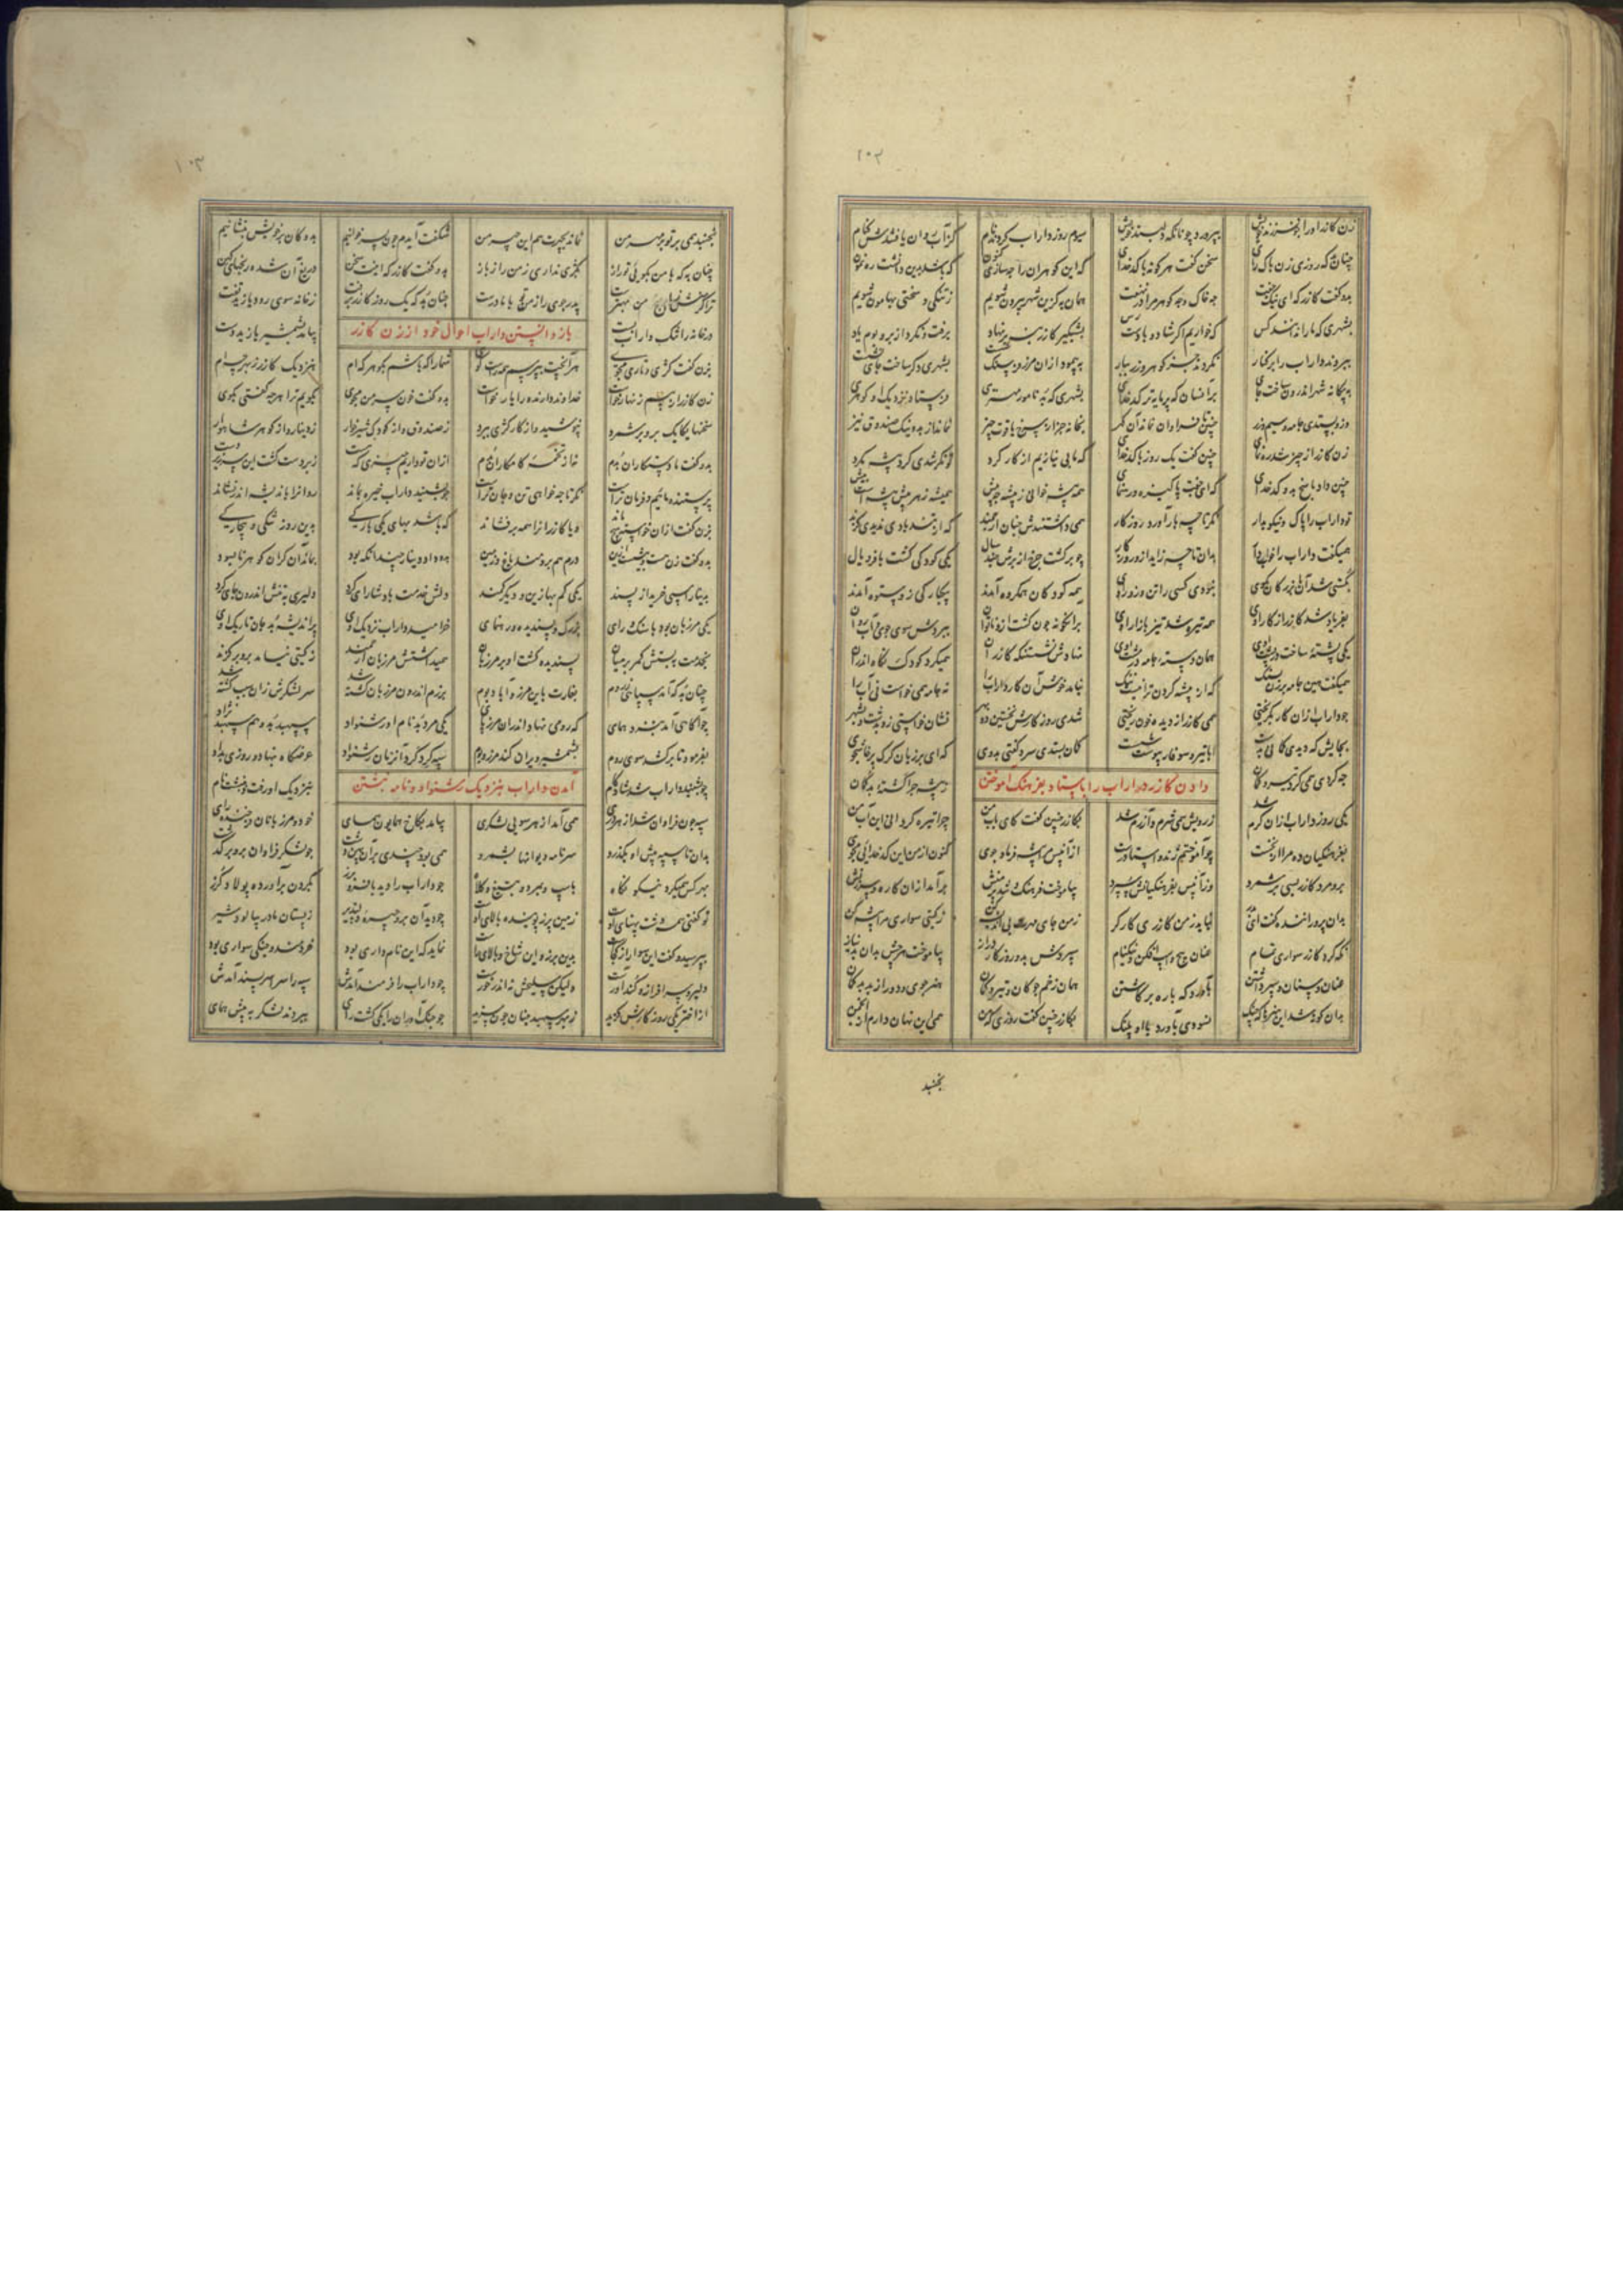 ۱۰۲
زن کازر او را چو فرزند خویش بپرورد چونانکه دلبند خویش سیوم روز داراب کردند نام کز آب روان یافتندش کنام
چنان بد که روزی زن پاک رای سخن گفت هر گونه با کدخدای که این گوهران را چه سازی کنون که باشد بدین دانشت رهنمون
بدو گفت کازر که ای نیک جفت چه خاک و چه گوهر مرا در نهفت همان به کزین شهر بیرون شویم ز تنگی و سختی بهامون شویم
بشهری که ما را ندانند کس که خواریم اگر شاد و با دسترس بشبگیر کازر بنه برنهاد برفت و نکرد از بر و بوم یاد
ببردند داراب را بر کنار نکردند جز گوهر و زر ببار به پیمود ازان مرز فرسنگ شست بشهری دگر ساخت جای نشست
به بیگانه شهر اندرون ساخت جای بر آنسان که پرمایه‌تر کدخدای بشهری که بد نامور مهتری فرستاد نزدیک او گوهری
وزو بستدی جامه و سیم و زر چنین تا فراوان نماند آن گهر بخانه جز از سرخ یاقوت چیز نماند از بد و نیک صندوق نیز
زن کازر از چیز شد رهنمای چنین گفت یک روز با کدخدای که ما بی نیازیم از کار کرد توانگر شدی گرد پیشه مگرد
چنین داد پاسخ بدو کدخدای که ای جفت پاکیزه و رهنمای همی پیشه خوانی ز پیشه چه بیش همیشه ز هر پیش پیشه است پیش
تو داراب را پاک و نیکو بدار نگر تا چه بار آورد روزگار همی داشتندش چنان ارجمند که از تند بادی ندیدی گزند
همیگفت داراب را خوار دار بدان تا چه زاید از و روزگار چو برگشت چرخ از برش چند سال یکی کودکی گشت با فر و یال
بکشتی شد آن با بزرگان بکوی نبودی کسی را تن و زور اوی همه کودکان همگروه آمدند به پیکار کی زو ستوه آمدند
بفریاد شد کازر از کار اوی همه تیره شد تیز بازار اوی برانگونه چون گشت ازو ناتوان ببردش سوی جوی آب روان
یکی پشته ساخت همان دسته جامه نهادش نشستنگه کازران همیکرد کودک نگاه اندران
همیگفت همین جامه برزن بسنگ که از پیشه کردن ترا نیست ننگ نیامد خوش آن کار داراب را نه جامه همی خواست نی آب را
چو داراب ازان کار بگریختی همی کازر از دیده خون ریختی شدی روز کارش بجستن دو بهر نشان خواستی زو بدشت و بشهر
بجایش که دیدی کمانی بدست ابا تیر و سوفار پیوسته شست کمان بستدی سرد گفتی بدوی که ای مرزبان گرگ پرخاشجوی
چه کردی همی گرد تیر و کمان به پیشه چرا گشته بدگمان
دادن کازر داراب را باستاد بفرهنگ آموختن
یکی روز داراب ازان گرم شد ز رویش همی شرم و آزرم شد بکازر چنین گفت کای باب من چرا تیره گردانی این آب من
بفرهنگیان ده مرا از نخست چو آموختم زند و استا درست ازآنپس مرا پیشه فرما و جوی کنون از من این کدخدائی مجوی
برو مرد کازر بسی برشمرد وز آنپس بفرهنگیانش سپرد بیاموخت فرهنگ و شد پرمنش برآمد ازان کاره سرزنش
بدان پروراننده گفت ای پدر نیاید ز من کازری کارگر ز من جای مهرت بی اندیشه کن ز گیتی سواری مرا پیشه کن
نگه کرد کازر سواری تمام عنان پیچ و اسپ افگن و نیکنام سپردش بدو روزگار دراز بیاموخت هرچش بدان بد نیاز
عنان و سنان و سپر داشتن بآورد گه باره برگاشتن همان زخم چوگان و تیر و کمان هنرجوی و دور از بد بدگمان
بدان گونه شد این هنرها که چنگ نسودی بآورد با او پلنگ بکازر چنین گفت روزی که من همی این نهان دارم از انجمن
نجنبد
۱۰۳
نجنبد همی بر تو بر مهر من نماند بچهرت هم این چهر من شگفت آیدم چون پسر خوانیم به دکان بر خویش بنشانیم
چنان به که با من بگویی تو راز بکژی نداری ز من راز باز بدو گفت کازر که اینت سخن دریغ آن شده رنجهای کهن
تراگر منش زان من بهترست پدر جوی را راز با مادرست چنان بد که یک روز کازر برفت ز خانه سوی رود یازید تفت
در خانه را تنگ داراب بست بیامد بشمشیر یازید دست
باز دانستن داراب احوال خود از زن کازر
بزن گفت کژی و تاری مجوی هرآنچت بپرسم همه راست گوی شما را که باشم بگوهر کدام بنزدیک کازر ز بهر چه ام
زن کازر از بیم زنهار خواست خداوند دارنده را یار خواست بدو گفت خون سر من مجوی بگویم ترا هرچه گفتی بگوی
سخنها یکایک برو بر شمرد نپوشید و از کار کژی ببرد ز صندوق و از کودک شیرخوار ز دینار و از گوهر شاهوار
بدو گفت ما دستکاران بدیم نه از تخمه کامکاران بدیم ازان تو داریم چیزی که هست زبردست گشت این سر زیردست
پرستنده مائیم و فرمان تراست نگر تا چه خواهی تن و جان تراست چو بشنید داراب خیره بماند روانرا باندیشه اندر نشاند
بزن گفت ازان خواسته هیچ ماند و یا کازر آنرا همه برفشاند که باشد بهای یکی بارگی بدین روز تنگی و بیچارگی
بدو گفت زن هست بیش از این درم هم برومند باغ و زمین بدو داد دینار چندانکه بود بماند آن گران گوهر نابسود
بدینار اسپی خرید او پسند یکی کم بها زین و دیگر کمند دلش خدمت پادشا رای کرد دلیری به تنش اندرون جای کرد
یکی مرزبان بود با سنگ و رای بزرگ و پسندیده و رهنمای خرامید داراب نزدیک اوی پر اندیشه بد جان تاریک اوی
بخدمت ببستش کمر بر میان پسندیده گشت او بر مرزبان همیداشتش مرزبان ارجمند ز گیتی نیامد برو بر گزند
چنان بد که آمد سپاهی ز روم بغارت باین مرز آباد بوم برزم اندرون مرزبان کشته شد سر لشکرش زان سبب گشته شد
چو آگاهی آمد بنزد همای که رومی نهاد اندران مرز پای یکی مرد بد نام او رشنواد سپهبد بد و هم سپهبد نژاد
بفرمود تا برکشد سوی روم بشمشیر ویران کند مرز و بوم سپه گرد کرد آنزمان رشنواد عرضگاه بنهاد و روزی بداد
چو بشنید داراب شد شادکام بنزدیک او رفت و بنوشت نام
آمدن داراب بنزدیک رشنواد و نامه نبشتن
سپه چون فراوان شد از هر دری همی آمد از هر سویی لشکری بیامد بکاخ همایون همای خود و مرزبانان و خجسته رای
بدان تا سپه پیش او بگذرد سر نامه دیوانها بشمرد همی بود چندی بر آن پهن دشت چو لشکر فراوان برو بر گذشت
بهر کس همیکرد نیکو نگاه چو داراب را دید با فر و برز بگردن برآورده پولاد گرز
تو گفتی همه دشت پهنای اوست زمین زیر پوینده بالای اوست چو دید آن بر و چهره دلپذیر ز پستان مادر بپالود شیر
بپرسید و گفت این سوار از کجاست بدین برز و این شاخ و بالای راست نماید که این نامداری بود خردمند و جنگی سواری بود
دلیر و سرافراز و کنداورست ولیکن سلیحش نه اندر خورست چو داراب را فرمند آمدش سپه را سراسر پسند آمدش
از اختر یکی روز کارش گزید ز بهر سپهبد چنان چون سزید چو جنگ آوران را یکی گشت رای ببردند لشکر ز پیش همای